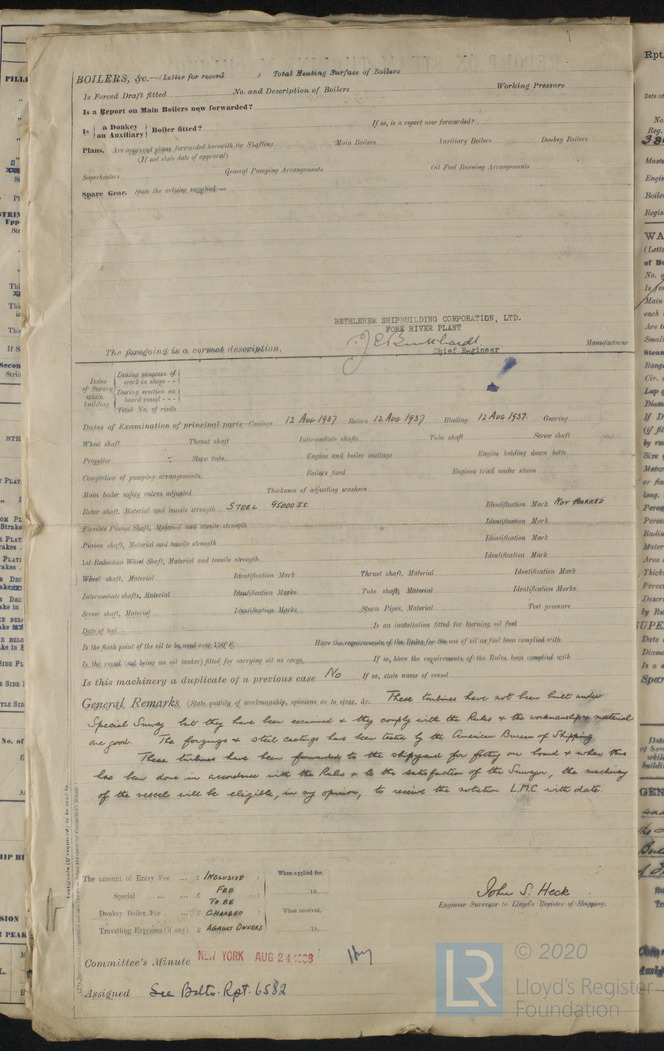 BOILERS, &c.—(Letter for record ) Total Heating Surface of Boilers
Is Forced Draft fitted No. and Description of Boilers Working Pressure
Is a Report on Main Boilers now forwarded?
Is { a Donkey / an Auxiliary } Boiler fitted? If so, is a report now forwarded?
Plans. Are approved plans forwarded herewith for Shafting Main Boilers Auxiliary Boilers Donkey Boilers
(If not state date of approval)
Superheaters General Pumping Arrangements Oil Fuel Burning Arrangements
Spare Gear. State the articles supplied
BETHLEHEM SHIPBUILDING CORPORATION, LTD.
FORE RIVER PLANT
Chief Engineer
The foregoing is a correct description, Manufacturer
Dates of Survey while building
During progress of work in shops - -
During erection on board vessel - - -
Total No. of visits
Dates of Examination of principal parts—Casings 12 Aug 1937 Rotors 12 Aug 1937 Blading 12 Aug 1937. Gearing
Wheel shaft Thrust shaft Intermediate shafts Tube shaft Screw shaft
Propeller Stern tube Engine and boiler seatings Engine holding down bolts
Completion of pumping arrangements Boilers fixed Engines tried under steam
Main boiler safety valves adjusted Thickness of adjusting washers
Rotor shaft, Material and tensile strength STEEL 95000 Identification Mark NOT MARKED
Flexible Pinion Shaft, Material and tensile strength Identification Mark
Pinion shaft, Material and tensile strength Identification Mark
1st Reduction Wheel Shaft, Material and tensile strength Identification Mark
Wheel shaft, Material Identification Mark Thrust shaft, Material Identification Mark
Intermediate shafts, Material Identification Marks Tube shaft, Material Identification Marks
Screw shaft, Material Identification Marks Steam Pipes, Material Test pressure
Date of test Is an installation fitted for burning oil fuel
Is the flash point of the oil to be used over 150°F. Have the requirements of the Rules for the use of oil as fuel been complied with
Is the vessel (not being an oil tanker) fitted for carrying oil as cargo If so, have the requirements of the Rules been complied with
Is this machinery a duplicate of a previous case No If so, state name of vessel
General Remarks (State quality of workmanship, opinions as to class, &c. These turbines have not been built under
Special Survey but they have been examined & they comply with the Rules & the workmanship & material
are good. The forgings & steel castings have been tested by the American Bureau of Shipping.
These turbines have been forwarded to the shipyard for fitting on board & when this
has been done in accordance with the Rules & to the satisfaction of the Surveyor, the machinery
of the vessel will be eligible, in my opinion, to receive the notation L.M.C. with date.
The amount of Entry Fee ... £ INCLUSIVE : When applied for,
Special ... ... £ FEE TO BE 19
Donkey Boiler Fee ... £ CHARGED : When received,
Travelling Expenses (if any) £ AGAINST OWNERS 19
John S. Heck.
Engineer Surveyor to Lloyd's Register of Shipping.
Committee's Minute NEW YORK AUG 24
Assigned See Balto. Rpt. 6582
© 2020
LR Lloyd's Register
Foundation